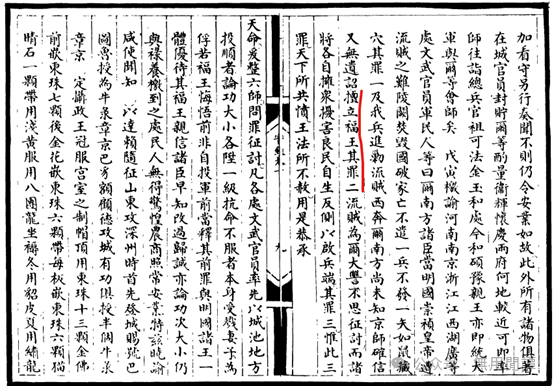 加看守另行奏聞不則仍令安業如故此外所有諸物俱著
在城官員封貯爾等酌量衛輝懷慶兩府何地較近可即率
師往詣總兵官祖可法金玉和處令和碩豫親王亦即統大
軍與爾等會師矣 戊寅檄諭河南南京浙江江西湖廣等
處文武官員軍民人等曰爾南方諸臣當明國崇禎皇帝遭
流賊之難陵闕焚毀國破家亡不遣一兵不發一矢如鼠藏
穴其罪一及我兵進勦流賊西奔爾南方尚未知京師確信
又無遺詔擅立福王其罪二流賊為爾大讐不思征討而諸
將各自擁衆擾害良民自生反側以啟兵端其罪三惟此三
九
罪天下所共憤王法所不赦用是恭承
天命爰整六師問罪征討凡各處文武官員率先以城池地方
投順者論功大小各陞一級抗命不服者本身受戮妻子為
俘若福王悔悟前非自投軍前當釋其前罪與明國諸王一
體優待其福王親信諸臣早知改過歸誠亦論功次大小仍
與祿養檄到之處民人無得驚惶農商照常安業特茲曉諭
咸使聞知 以達賴隨征山東攻深州時首先登城賜號巴
圖魯授為牛彔章京巴額爾德克攻城有功俱授半箇牛彔
章京 定攝政王冠服宮室之制帽頂用東珠十三顆金佛
前嵌東珠七顆後金花嵌東珠六顆帶每板嵌東珠六顆貓
睛石一顆帶用淺黃服用八團龍坐褥冬用貂皮夏用繡龍